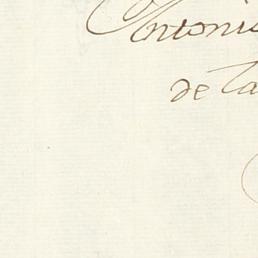 Antonio
de la